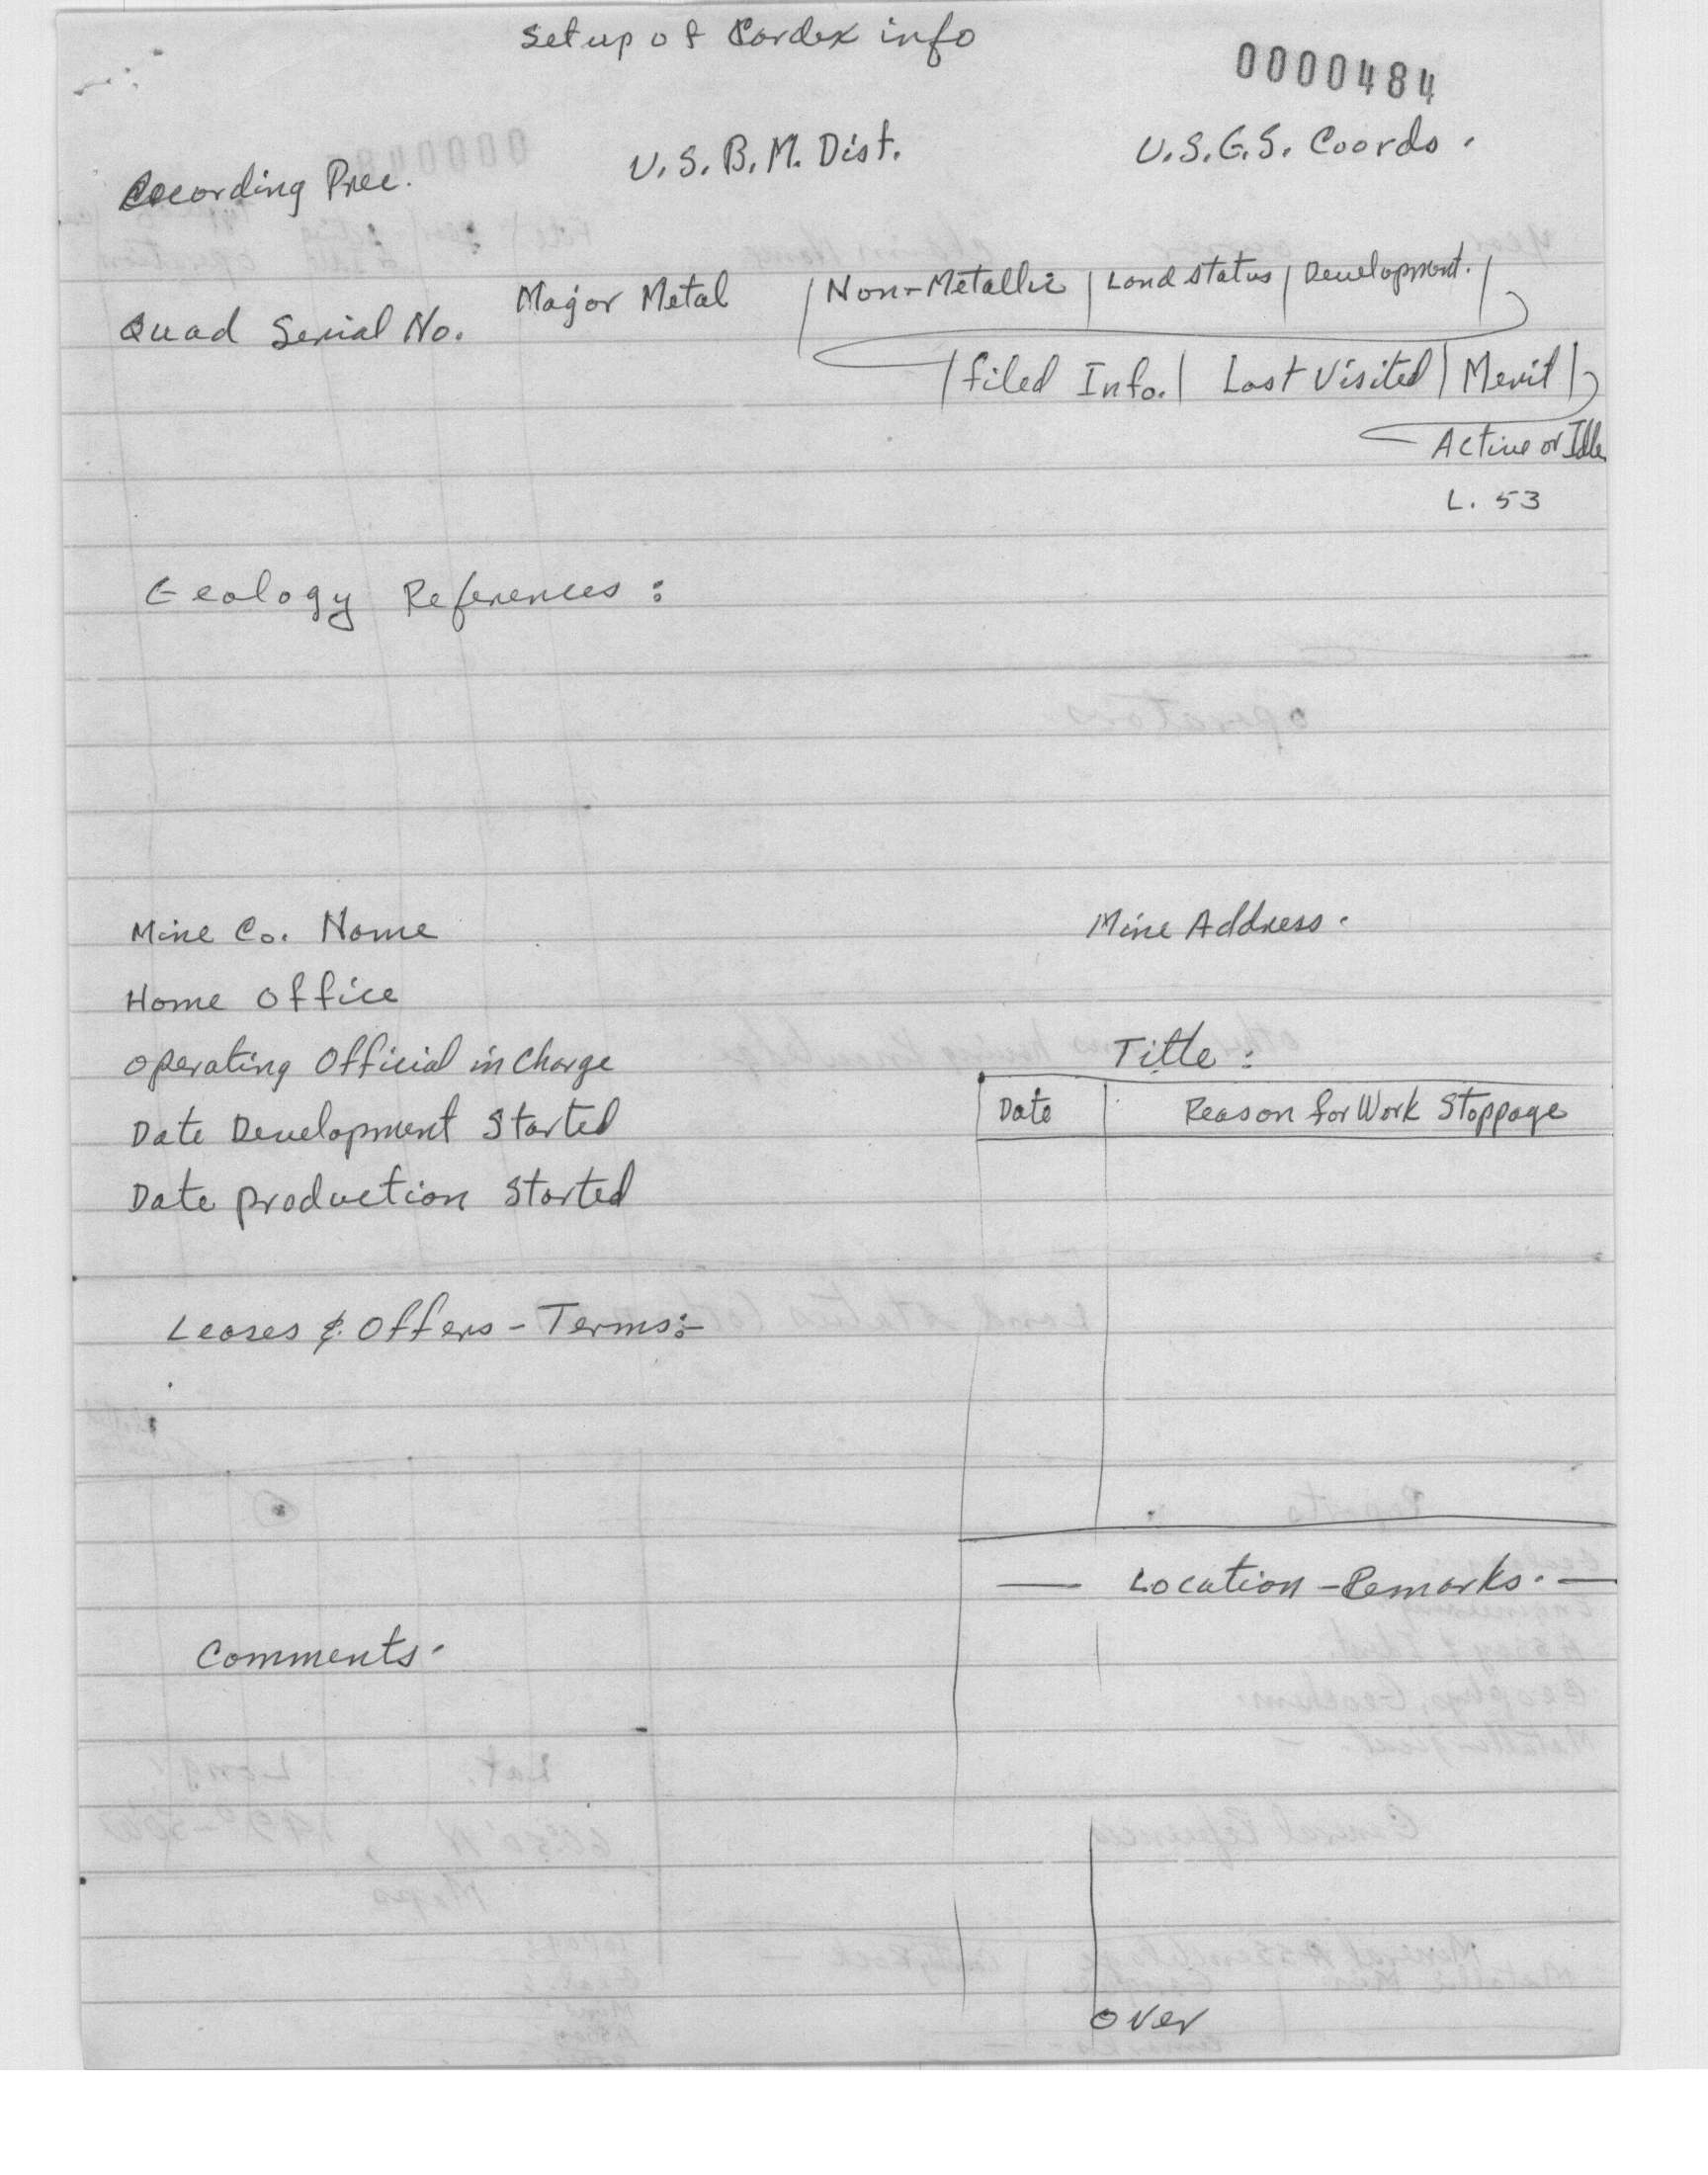 Setup of Cardex info
0000484
Recording Prec. U.S.B.M. Dist. U.S.G.S. Coords.
Quad Serial No. Major Metal | Non-Metallic | Land Status | Development. |
| filed Info. | Last Visited | Merit |
Active or Idle
L. 53
Geology References:
Mine Co. Name Mine Address.
Home Office
Operating Official in Charge Title:
Date Development Started Date | Reason for Work Stoppage
Date production Started
Leases & Offers - Terms:-
— Location - Remarks. —
Comments.
over